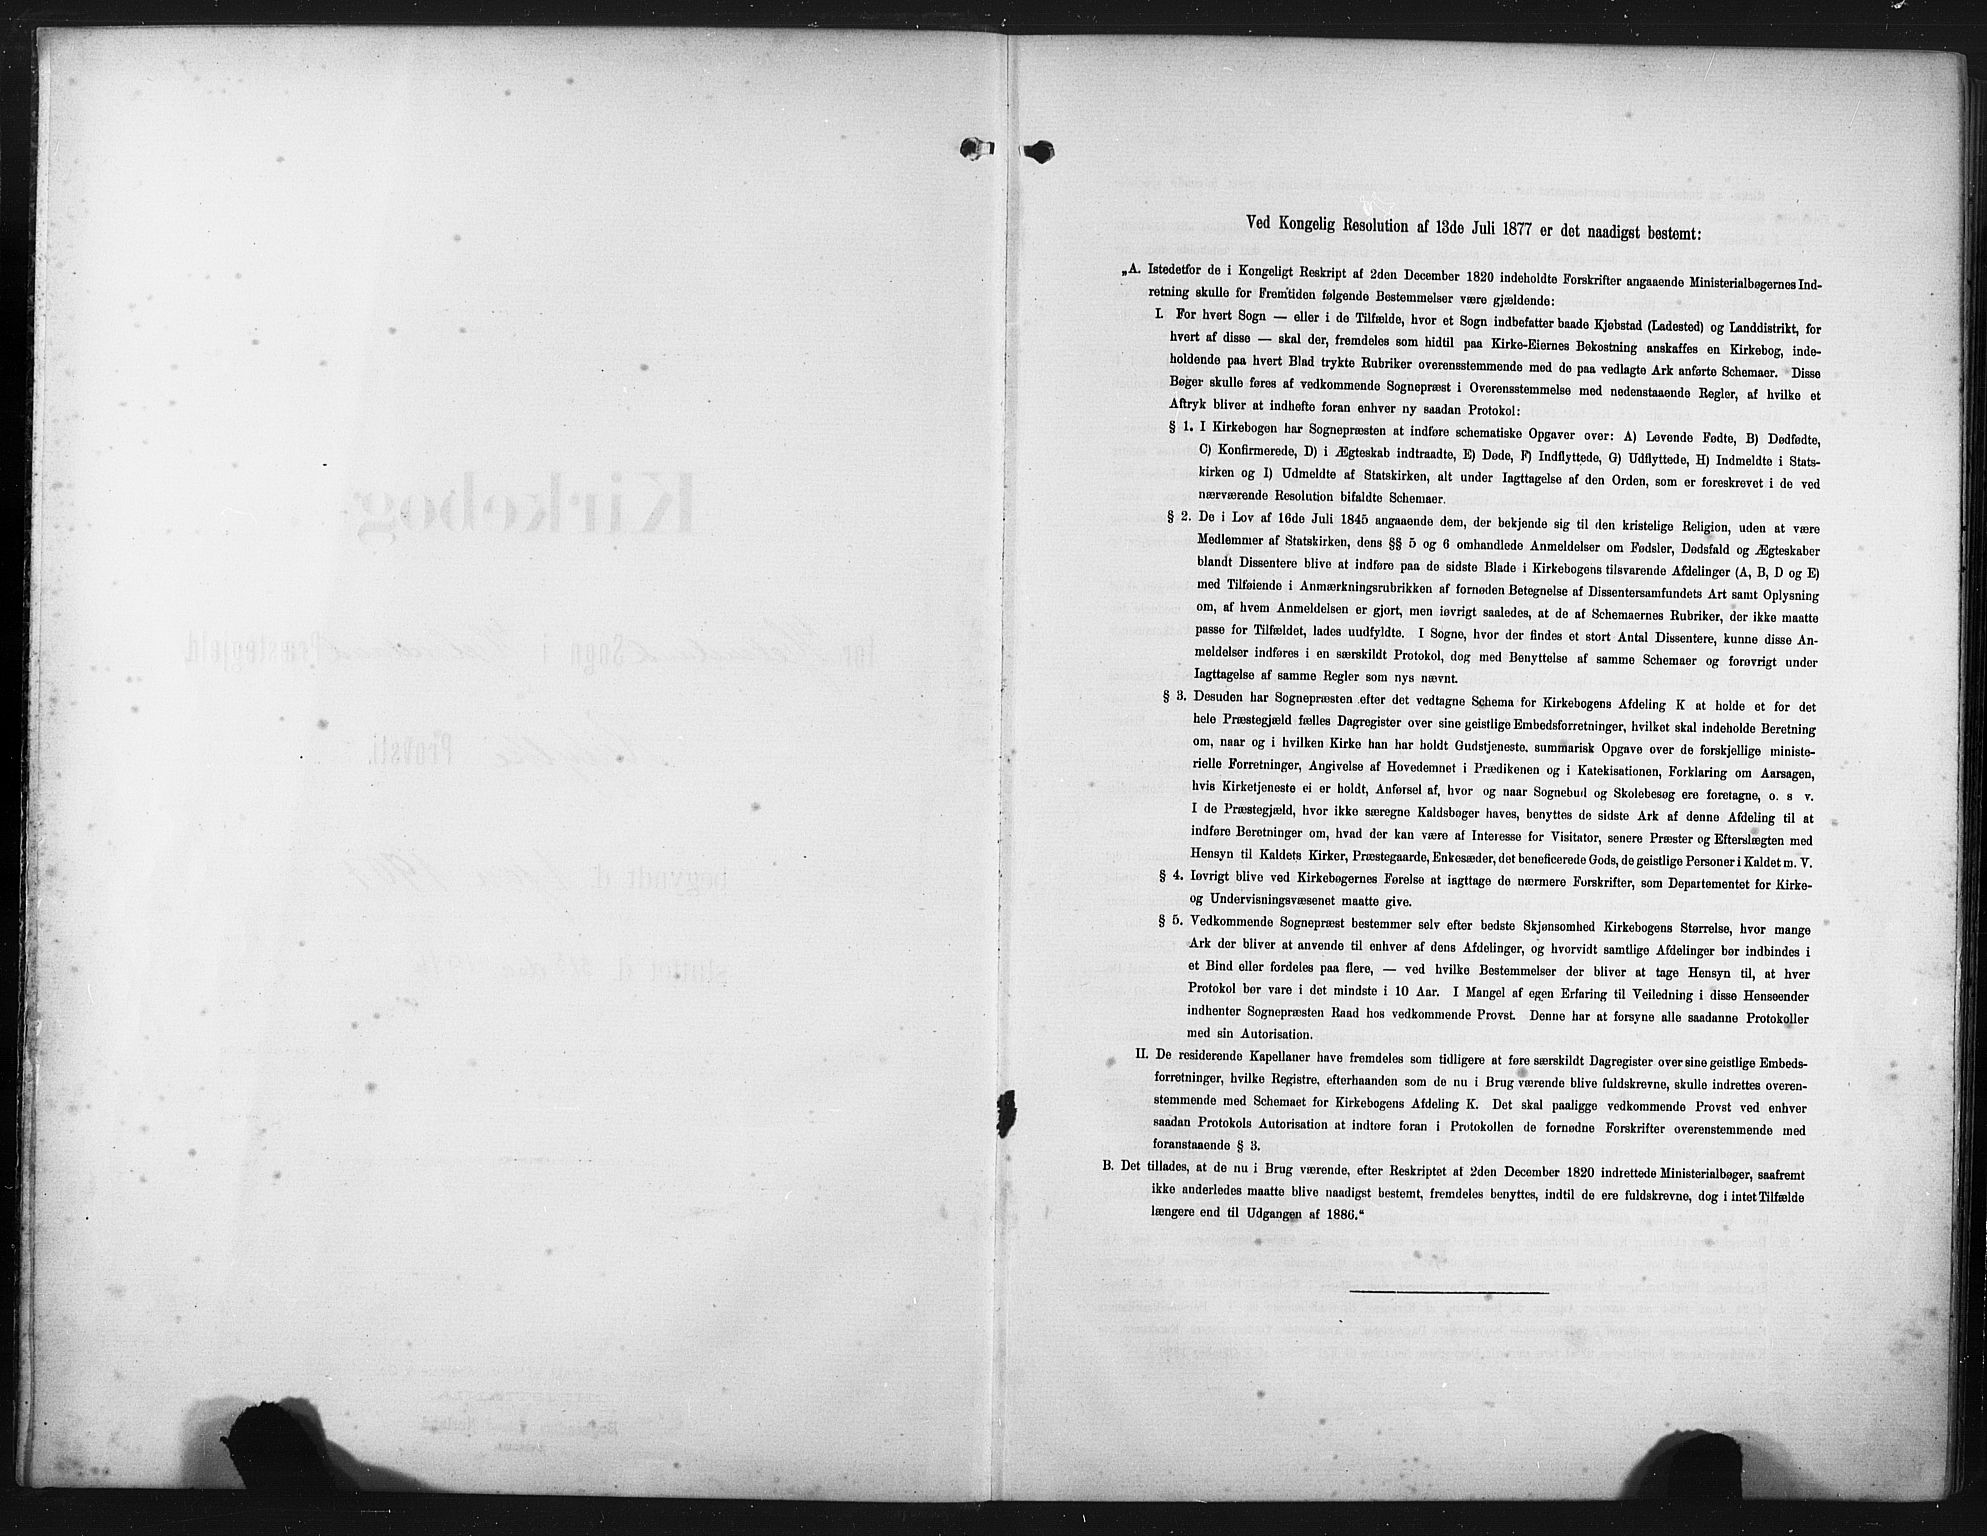 Ved Kongelig Resolution af 13de Juli 1877 er det naadigst bestemt:
„A. Istedetfor de i Kongeligt Reskript af 2den December 1820 indeholdte Forskrifter angaaende Ministerialbøgernes Ind-
retning skulle for Fremtiden følgende Bestemmelser være gjældende:
I. For hvert Sogn — eller i de Tilfælde, hvor et Sogn indbefatter baade Kjøbstad (Ladested) og Landdistrikt, for
hvert af disse — skal der, fremdeles som hidtil paa Kirke-Eiernes Bekostning anskaffes en Kirkebog, inde-
holdende paa hvert Blad trykte Rubriker overensstemmende med de paa vedlagte Ark anførte Schemaer. Disse
Bøger skulle føres af vedkommende Sognepræst i Overensstemmelse med nedenstaaende Regler, af hvilke et
Aftryk bliver at indhefte foran enhver ny saadan Protokol:
§ 1. I Kirkebogen har Sognepræsten at indføre schematiske Opgaver over: A) Levende Fødte, B) Dødfødte,
C) Konfirmerede, D) i Ægteskab indtraadte, E) Døde, F) Indflyttede, G) Udflyttede, H) Indmeldte i Stats-
kirken og I) Udmeldte af Statskirken, alt under Iagttagelse af den Orden, som er foreskrevet i de ved
nærværende Resolution bifaldte Schemaer.
§ 2. De i Lov af 16de Juli 1845 angaaende dem, der bekjende sig til den kristelige Religion, uden at være
Medlemmer af Statskirken, dens §§ 5 og 6 omhandlede Anmeldelser om Fødsler, Dødsfald og Ægteskaber
blandt Dissentere blive at indføre paa de sidste Blade i Kirkebogens tilsvarende Afdelinger (A, B, D og E)
med Tilføiende i Anmærkningsrubrikken af fornøden Betegnelse af Dissentersamfundets Art samt Oplysning
om, af hvem Anmeldelsen er gjort, men iøvrigt saaledes, at de af Schemaernes Rubriker, der ikke maatte
passe for Tilfældet, lades uudfyldte. I Sogne, hvor der findes et stort Antal Dissentere, kunne disse An-
meldelser indføres i en særskildt Protokol, dog med Benyttelse af samme Schemaer og forøvrigt under
Iagttagelse af samme Regler som nys nævnt.
§ 3. Desuden har Sognepræsten efter det vedtagne Schema for Kirkebogens Afdeling K at holde et for det
hele Præstegjæld fælles Dagregister over sine geistlige Embedsforretninger, hvilket skal indeholde Beretning
om, naar og i hvilken Kirke han har holdt Gudstjeneste, summarisk Opgave over de forskjellige ministe-
rielle Forretninger, Angivelse af Hovedemnet i Prædikenen og i Katekisationen, Forklaring om Aarsagen,
hvis Kirketjeneste ei er holdt, Anførsel af, hvor og naar Sognebud og Skolebesøg ere foretagne, o. s v.
I de Præstegjæld, hvor ikke særegne Kaldsbøger haves, benyttes de sidste Ark af denne Afdeling til at
indføre Beretninger om, hvad der kan være af Interesse for Visitator, senere Præster og Efterslægten med
Hensyn til Kaldets Kirker, Præstegaarde, Enkesæder, det beneficerede Gods, de geistlige Personer i Kaldet m. V.
§ 4. Iøvrigt blive ved Kirkebøgernes Førelse at iagttage de nærmere Forskrifter, som Departementet for Kirke-
og Undervisningsvæsenet maatte give.
§ 5. Vedkommende Sognepræst bestemmer selv efter bedste Skjønsomhed Kirkebogens Størrelse, hvor mange
Ark der bliver at anvende til enhver af dens Afdelinger, og hvorvidt samtlige Afdelinger bør indbindes i
et Bind eller fordeles paa flere, — ved hvilke Bestemmelser der bliver at tage Hensyn til, at hver
Protokol bør vare i det mindste i 10 Aar. I Mangel af egen Erfaring til Veiledning i disse Henseender
indhenter Sognepræsten Raad hos vedkommende Provst. Denne har at forsyne alle saadanne Protokoller
med sin Autorisation.
II. De residerende Kapellaner have fremdeles som tidligere at føre særskildt Dagregister over sine geistlige Embeds-
forretninger, hvilke Registre, efterhaanden som de nu i Brug værende blive fuldskrevne, skulle indrettes overen-
stemmende med Schemaet for Kirkebogens Afdeling K. Det skal paaligge vedkommende Provst ved enhver
saadan Protokols Autorisation at indføre foran i Protokollen de fornødne Forskrifter overenstemmende med
foranstaaende § 3.
B. Det tillades, at de nu i Brug værende, efter Reskriptet af 2den December 1820 indrettede Ministerialbøger, saafremt
ikke anderledes maatte blive naadigst bestemt, fremdeles benyttes, indtil de ere fuldskrevne, dog i intet Tilfælde
længere end til Udgangen af 1886.“